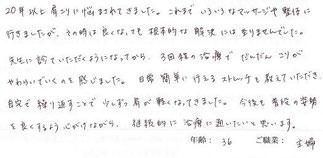 20年以上肩こりに悩まされてきました。これまでいろいろなマッサージや整体に
行きましたが、その時は良くなっても根本的な解決には至りませんでした。
先生に診ていただくようになってから、3回程の治療でだんだんこりが
やわらいでいくのを感じました。日常簡単に行えるストレッチも教えていただき、
自宅で繰り返すことで少しずつ肩が軽くなってきました。今後も普段の姿勢
を良くするよう心がけながら、継続的に治療に通いたいと思います。
年齢: 36 ご職業: 主婦